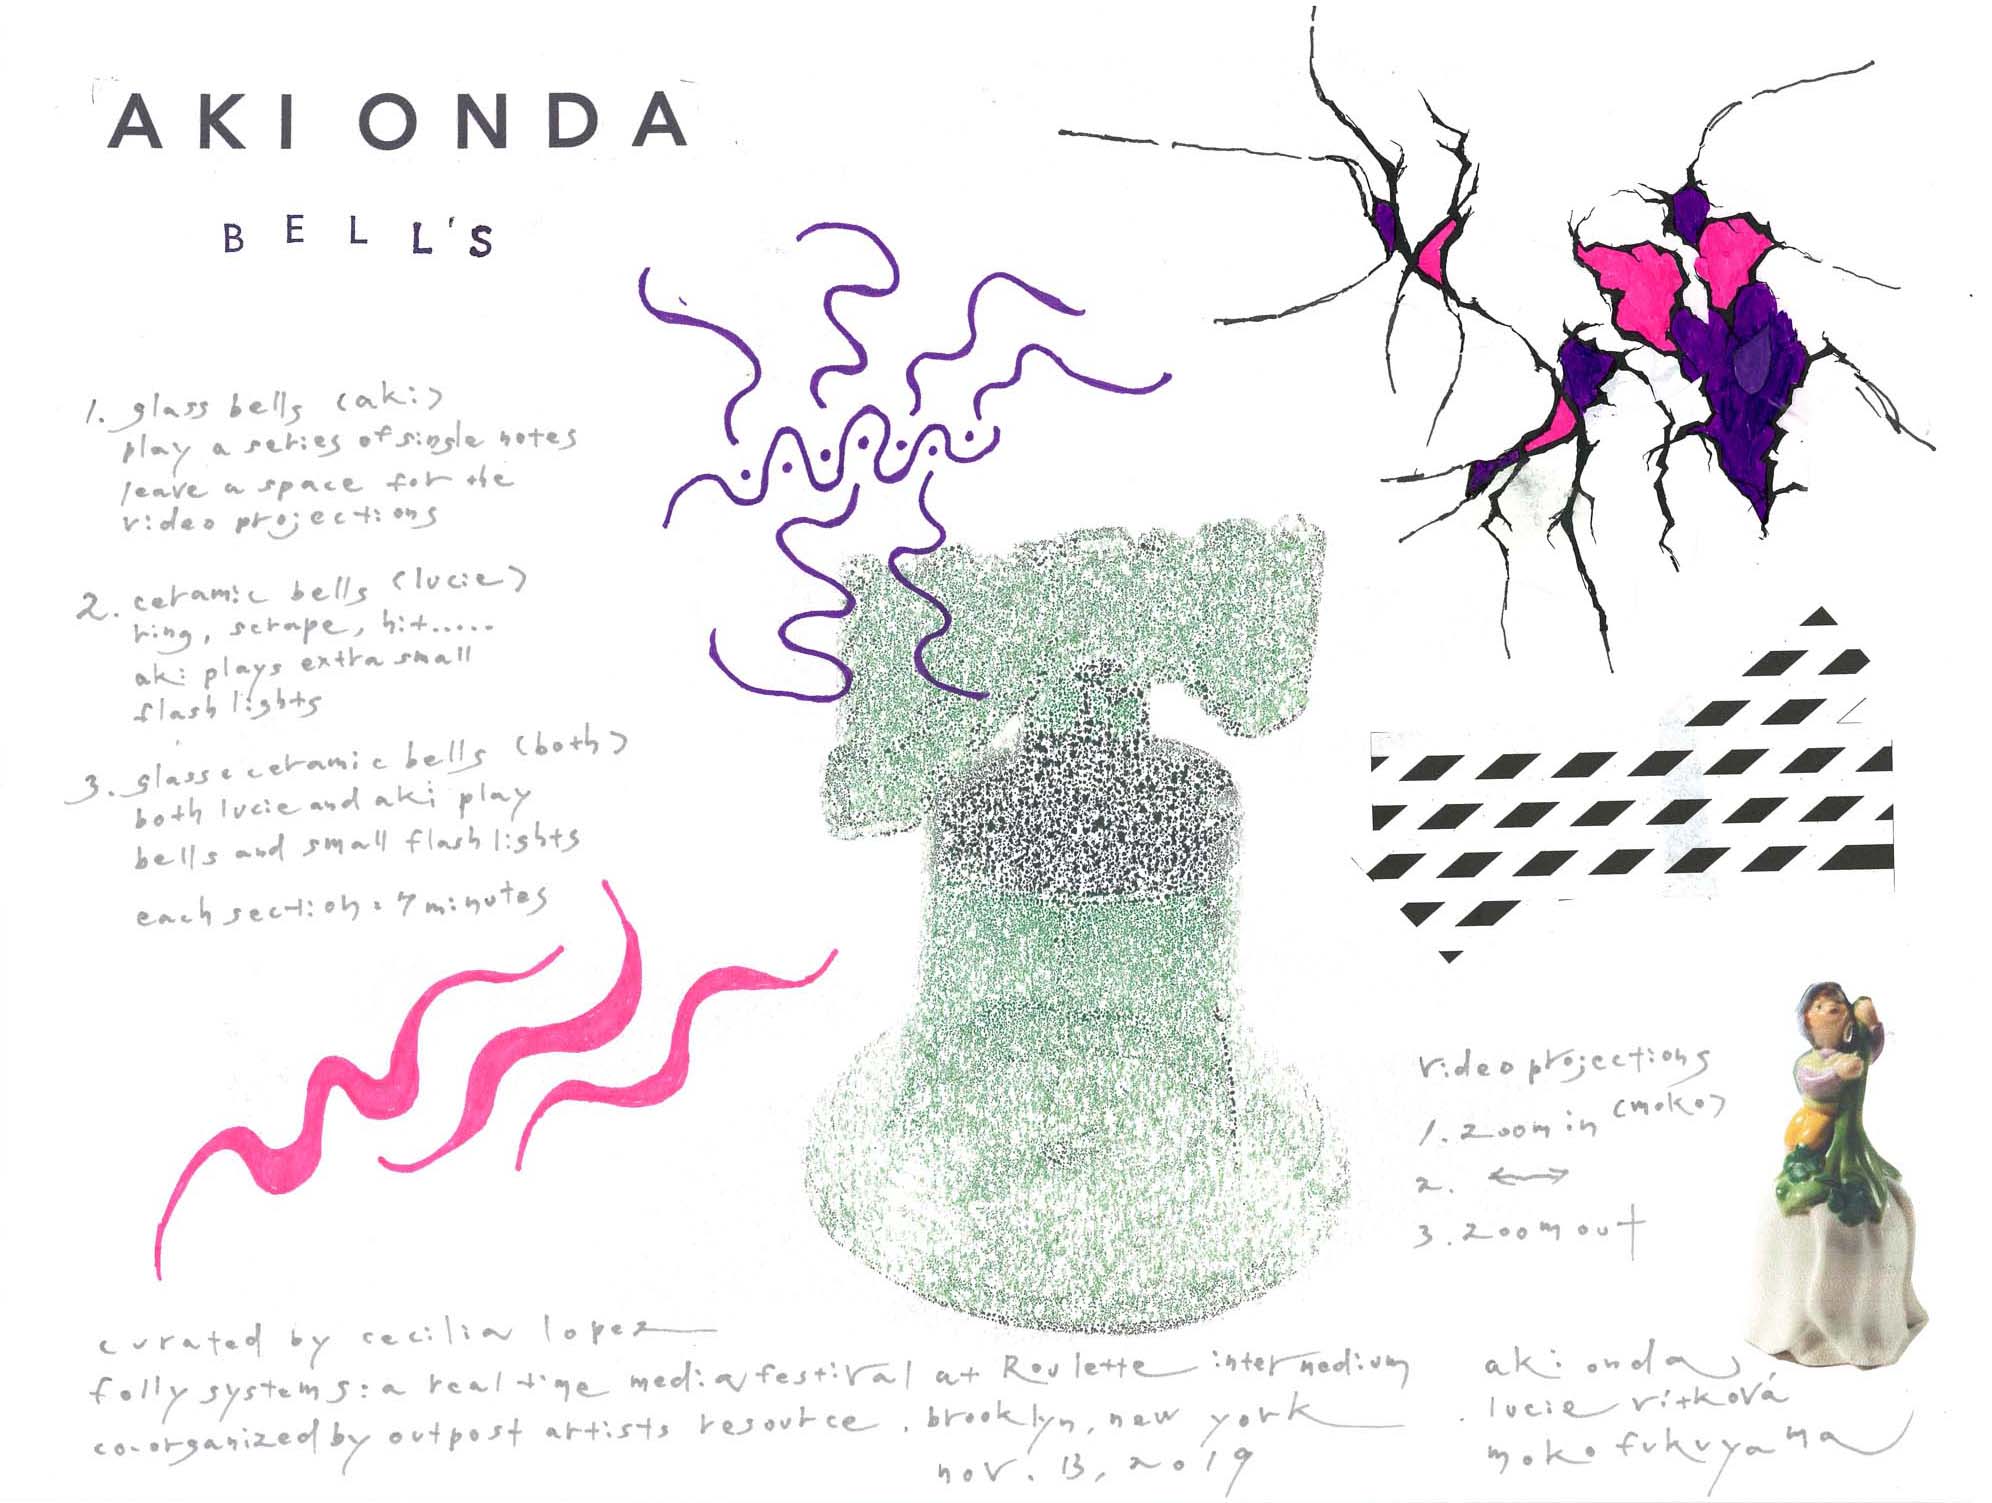 AKI ONDA
BELL'S
1. glass bells (aki)
play a series of single notes
leave a space for the
video projections
2. ceramic bells (lucie)
ring, scrape, hit.....
aki plays extra small
flash lights
3. glass & ceramic bells (both)
both lucie and aki play
bells and small flash lights
each section : 7 minutes
video projections
(moko)
1. zoom in
2. ↔
3. zoom out
curated by cecilia lopez
folly systems: a real time media festival at Roulette intermedium
co-organized by outpost artists resource . brooklyn, new york
nov. 13, 2019
aki onda
lucie vítková
moko fukuyama